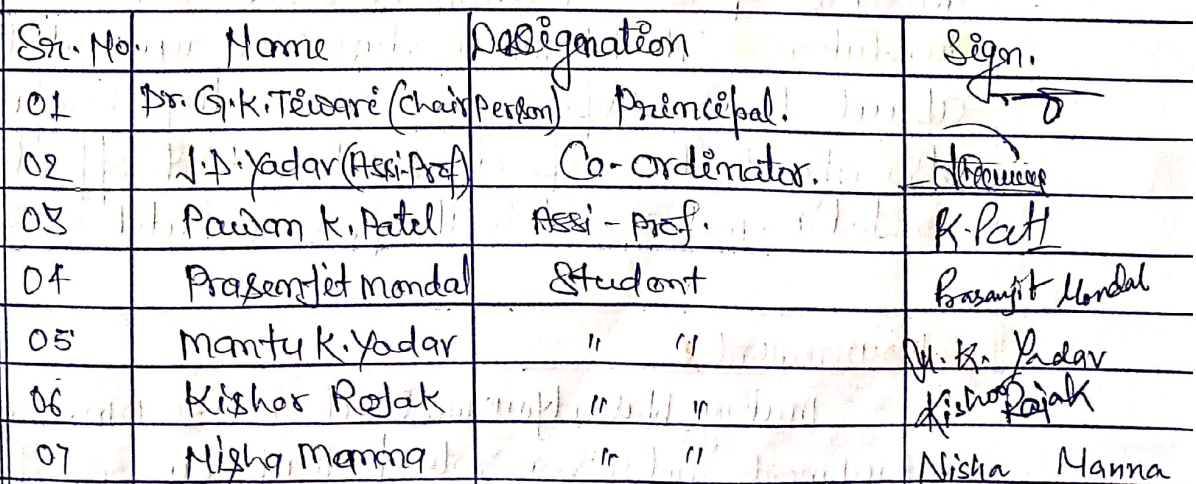 Sr. No. Name Designation Sign.
01 Dr. G.K. Tewari (Chair Person) Principal.
02 J.D. Yadav (Assi-Prof) Co-ordinator.
03 Pawan K. Patel Assi-prof. K.Patl
04 Prasenjit Mondal Student Basanjit Mondal
05 Mantu K. Yadav " " M. K. Yadav
06 Kishor Rojak " " Kishor Rajak
07 Nisha Manna " " Nisha Manna